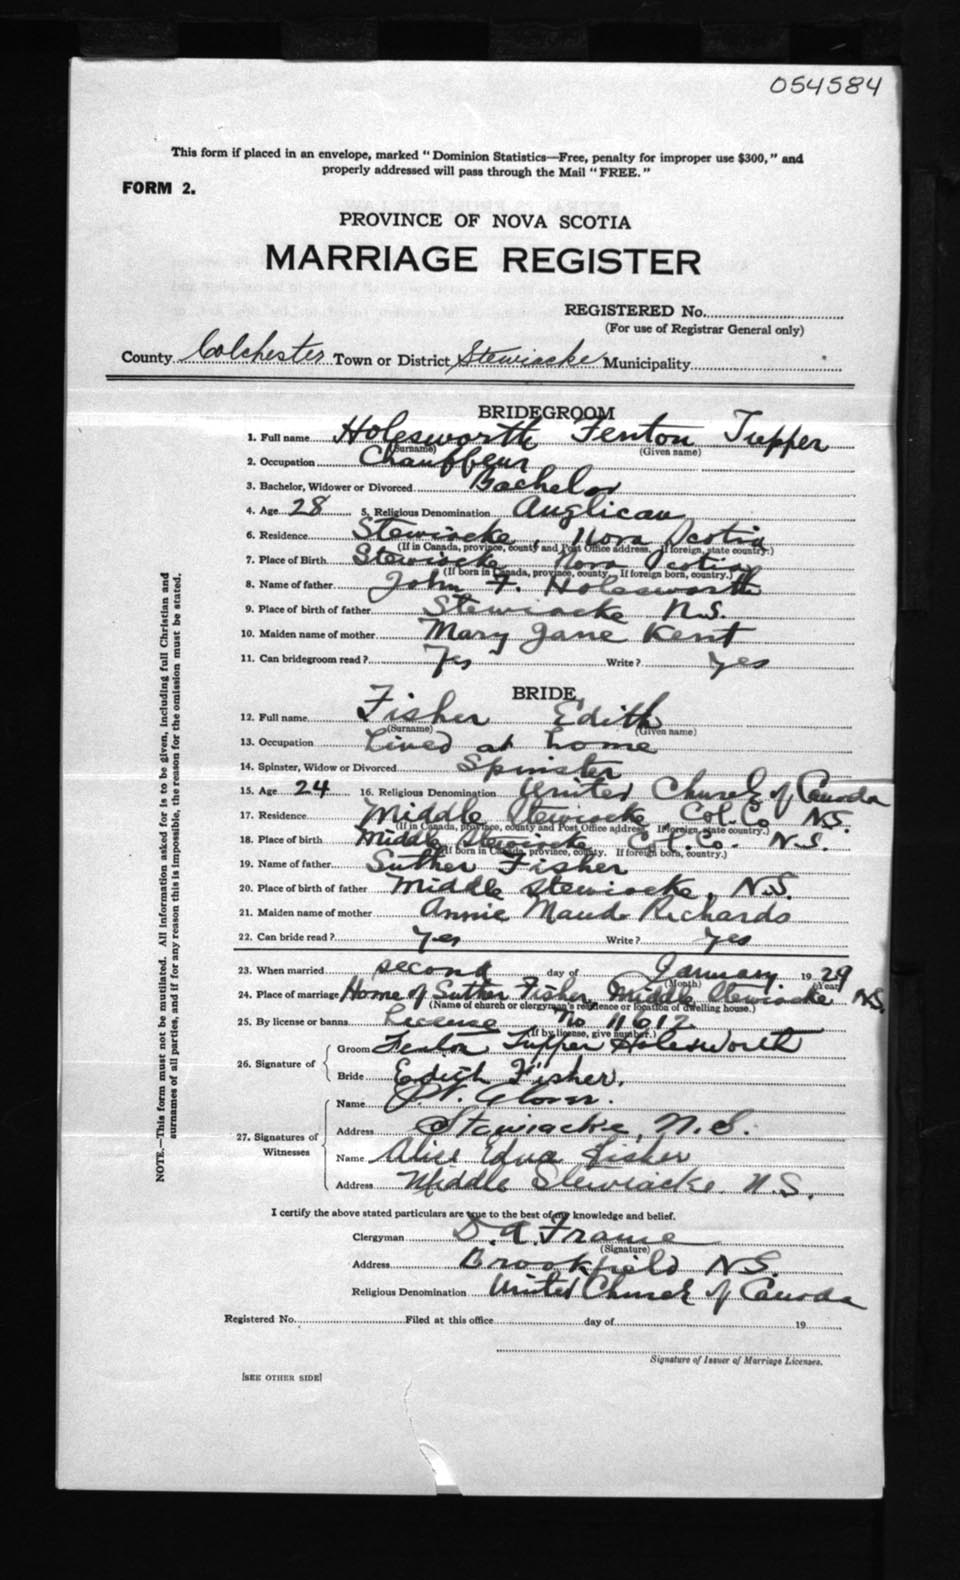 054584
This form if placed in an envelope, marked "Dominion Statistics—Free, penalty for improper use $300," and
properly addressed will pass through the Mail "FREE."
FORM 2.
PROVINCE OF NOVA SCOTIA
MARRIAGE REGISTER
REGISTERED No.
(For use of Registrar General only)
County Colchester Town or District Stewiacke Municipality
BRIDEGROOM
1. Full name Holesworth Fenton Tupper
(Surname) (Given name)
2. Occupation Chauffeur
3. Bachelor, Widower or Divorced Bachelor
4. Age 28 5. Religious Denomination Anglican
6. Residence Stewiacke, Nova Scotia
(If in Canada, province, county and Post Office address. If foreign, state country.)
7. Place of Birth Stewiacke Nova Scotia
(If born in Canada, province, county. If foreign born, country.)
8. Name of father John F. Holesworth
9. Place of birth of father Stewiacke N.S.
10. Maiden name of mother Mary Jane Kent
11. Can bridegroom read? Yes Write? yes
BRIDE
12. Full name Fisher Edith
(Surname) (Given name)
13. Occupation Lived at home
14. Spinster, Widow or Divorced Spinster
15. Age 24 16. Religious Denomination United Church of Canada
17. Residence Middle Stewiacke, Col. Co. N.S.
(If in Canada, province, county and Post Office address. If foreign, state country.)
18. Place of birth Middle Stewiacke Col. Co. N.S.
(If born in Canada, province, county. If foreign born, country.)
19. Name of father Suther Fisher
20. Place of birth of father Middle Stewiacke, N.S.
21. Maiden name of mother Annie Maud Richards
22. Can bride read? Yes Write? yes
23. When married second day of January 1929
(Month) (Year)
24. Place of marriage Home of Suther Fisher, Middle Stewiacke N.S.
(Name of church or clergyman's residence or location of dwelling house.)
25. By license or banns License No 11612
(If by license, give number.)
26. Signature of Groom Fenton Tupper Holesworth
Bride Edith Fisher.
27. Signatures of Witnesses Name J.W.
Address Stewiacke, N.S.
Name Alice Edna Fisher
Address Middle Stewiacke. N.S.
I certify the above stated particulars are true to the best of my knowledge and belief.
Clergyman D. A. Frame
(Signature)
Address Brookfield N.S.
Religious Denomination United Church of Canada
Registered No. Filed at this office day of 19
Signature of Issuer of Marriage Licenses.
[SEE OTHER SIDE]
NOTE.—This form must not be mutilated. All information asked for is to be given, including full Christian and
surnames of all parties, and if for any reason this is impossible, the reason for the omission must be stated.